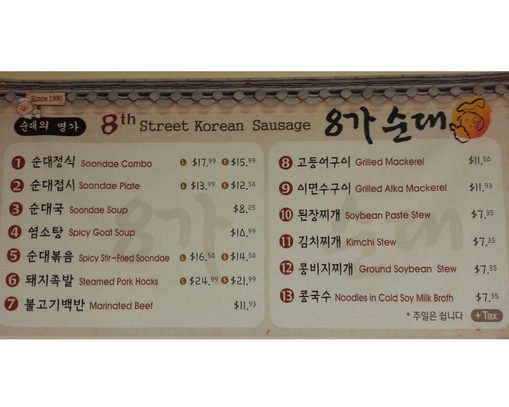 Since 1990
순대의 명가 8th Street Korean Sausage 8가 순대
1 순대정식 Soondae Combo L $17.99 S $15.99
2 순대접시 Soondae Plate L $13.99 S $12.50
3 순대국 Soondae Soup $8.25
4 염소탕 Spicy Goat Soup $10.99
5 순대볶음 Spicy Stir-Fried Soondae L $16.50 S $14.50
6 돼지족발 Steamed Pork Hocks L $24.99 S $21.99
7 불고기백반 Marinated Beef $11.93
8 고등어구이 Grilled Mackerel $11.50
9 이면수구이 Grilled Atka Mackerel $11.93
10 된장찌개 Soybean Paste Stew $7.35
11 김치찌개 Kimchi Stew $7.35
12 콩비지찌개 Ground Soybean Stew $7.35
13 콩국수 Noodles in Cold Soy Milk Broth $7.35
* 주일은 쉽니다 + Tax